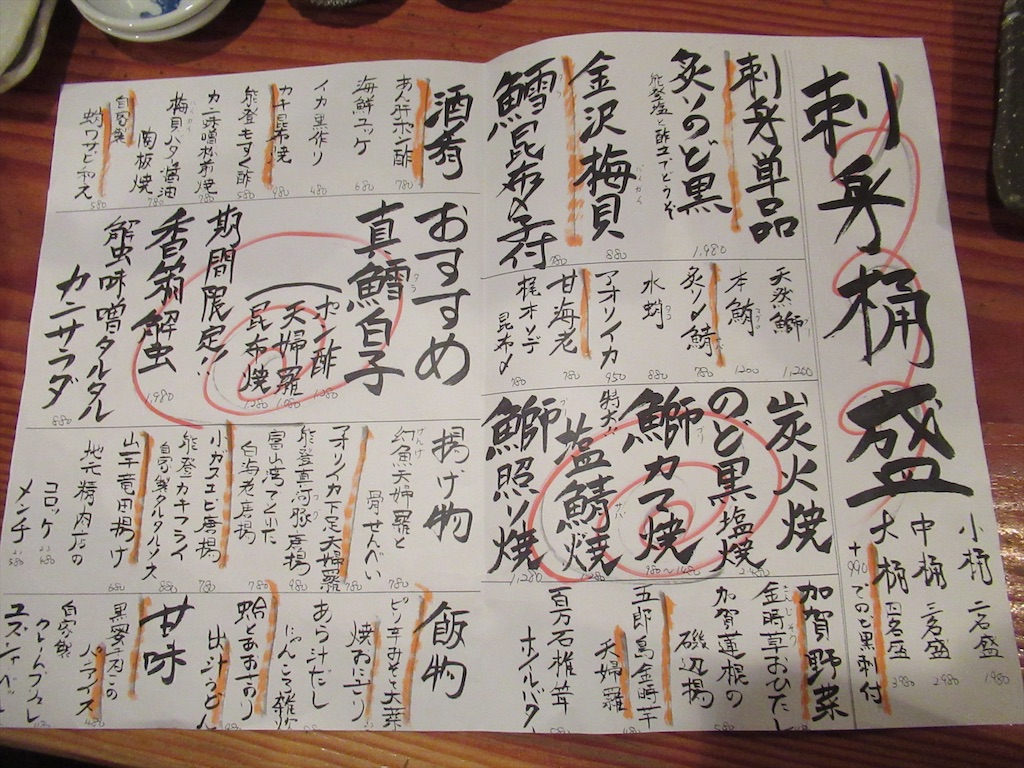 刺身桶盛
小桶 二名盛 1980
中桶 三名盛 2980
大桶 四名盛 3980
+990でのど黒刺付
刺身単品
炙りのど黒 1,980
能登塩と酢立でどうぞ
金沢梅貝 880
鱈昆布〆子付 780
天然鰤 1,200
本鮪 1200
炙り〆鯖 780
水蛸 880
アオリイカ 950
甘海老 780
梶木サシデ 昆布〆 780
炭火焼
のど黒塩焼 2,480
鰤カマ焼 980〜1480
特大!!塩鯖焼 1280
鰤照り焼 1,280
加賀野菜
金時草おひたし
加賀蓮根の
磯辺揚
五郎島金時芋
天婦羅
百万石椎茸
ホイルバタ
酒肴
あん肝ポン酢 780
海鮮ユッケ 680
イカ黒作り 480
カキ昆布焼 980
能登もずく酢 580
カニ味噌甲羅焼 780
梅貝バター醤油
陶板焼 780
自家製
蛸ワサビ和え 580
おすすめ
真鱈白子
ポン酢 1280
天婦羅 1,280
昆布焼 1,280
期間限定!!
香箱蟹 1,980
蟹味噌タルタル
カニサラダ 880
揚げ物
幻魚天婦羅と
骨せんべい 780
アオリイカ下足天婦羅 780
能登真河豚唐揚 980
富山湾でとれた
白海老唐揚 780
小ガスエビ唐揚 780
能登カキフライ
自家製タルタルソース 880
山千竜田揚げ 680
地元精肉店の
コロッケ 480
メンチ 580
飯物
ピリ辛みそと大葉
焼おにぎり
あら汁だし
にゃんこう雑炊
蛤とあおさのり
出汁うどん
甘味
黒蜜きなこの
パンアイス
自家製
クレームブリュレ
ユズシャーベ